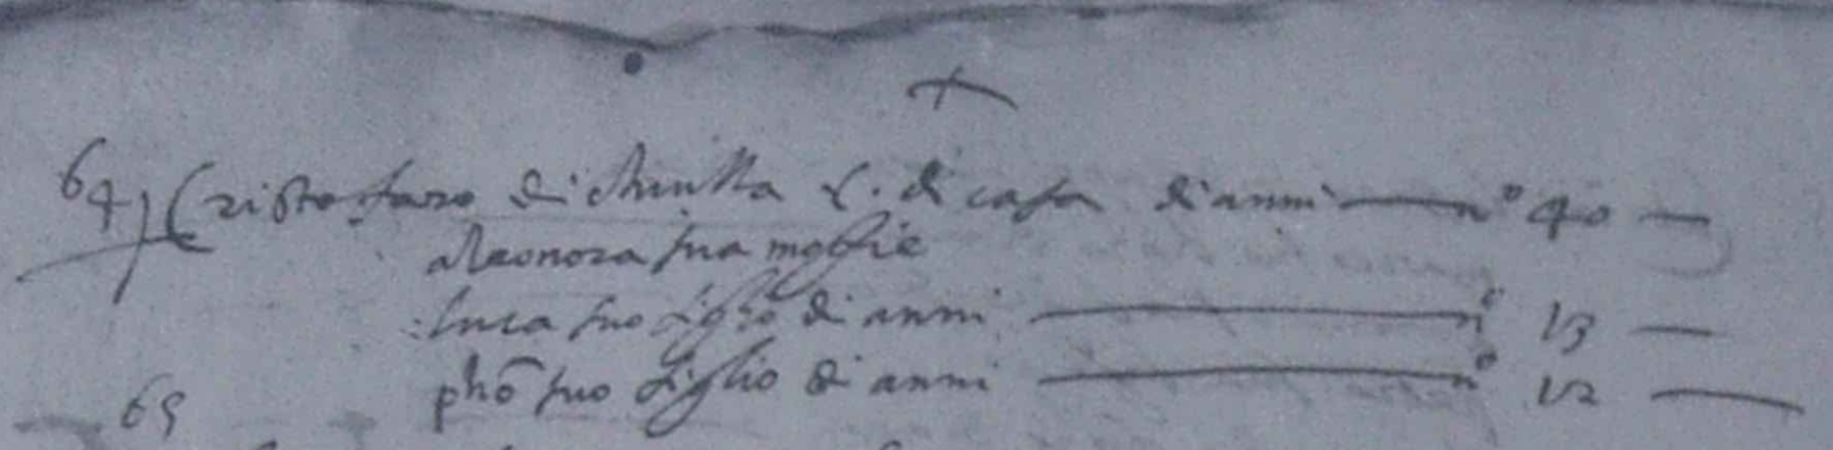 64) Cristofaro di C. di casa di anni n° 40
aleonora sua moglie
luca suo figlio di anni n° 13
phō suo figlio di anni n° 12
65